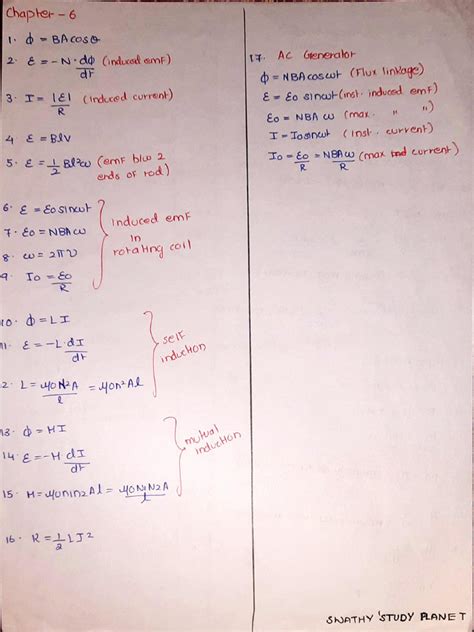 Chapter - 6
1. ϕ = BAcosθ
2. ε = -N·dϕ/dt (induced emf)
3. I = |ε|/R (induced current)
4 ε = Blv
5. ε = 1/2 Bl²ω (emf b/w 2 ends of rod)
6. ε = εo sinωt
7. εo = NBAω
8. ω = 2πν
9. Io = εo/R
induced emf
in
rotating coil
10. ϕ = LI
11. ε = -L·dI/dt
2. L = μoN²A/l = μon²Al
self
induction
13. ϕ = MI
14. ε = -M dI/dt
15. M = μon1n2Al = μoN1N2A/l
mutual
induction
16. K = 1/2 LI²
17. AC Generator
ϕ = NBAcosωt (Flux linkage)
ε = εo sinωt (inst. induced emf)
εo = NBAω (max. " ")
I = Iosinωt (inst. current)
Io = εo/R = NBAω/R (max ind current)
SWATHY'STUDY PLANET